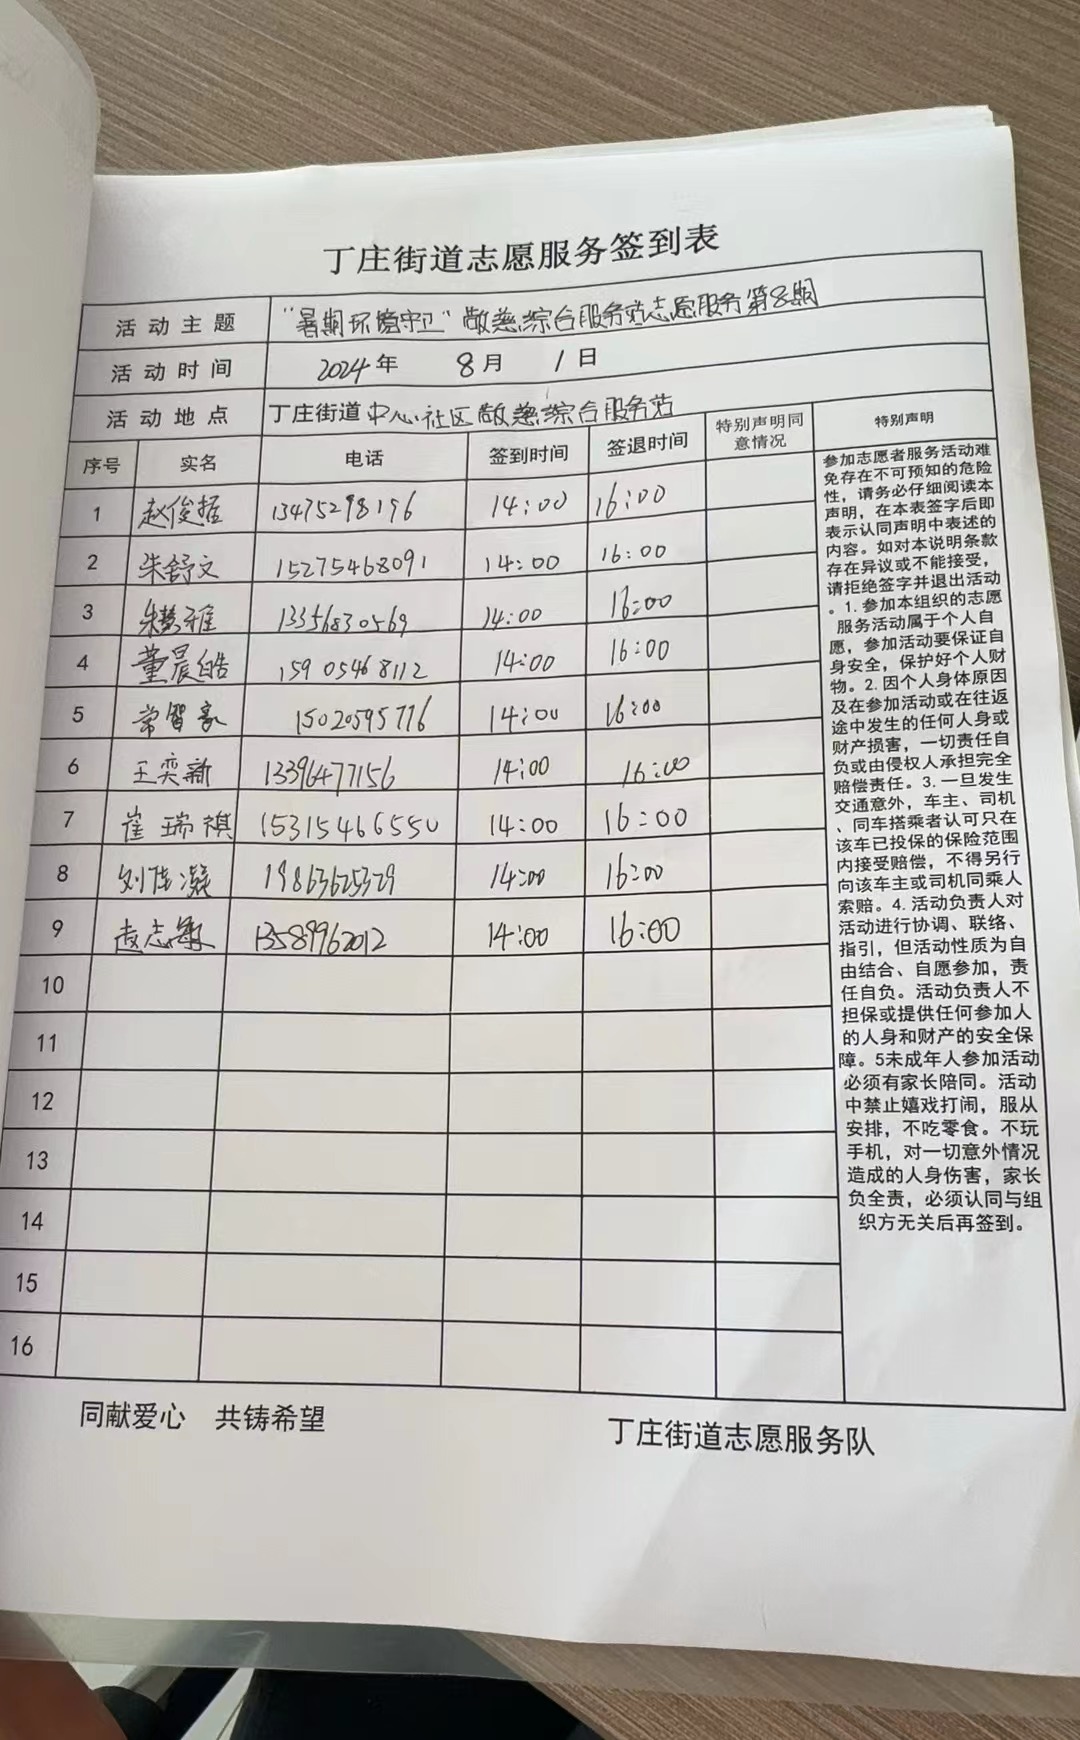 丁庄街道志愿服务签到表
活动主题 "暑期环境守卫"敬慈综合服务站志愿服务第8期
活动时间 2024年 8月 1日
活动地点 丁庄街道中心社区敬慈综合服务站
序号 实名 电话 签到时间 签退时间 特别声明同意情况 特别声明
1 赵俊哲 13475298196 14:00 16:00
2 朱舒文 15275468091 14:00 16:00
3 朱梦雅 13356830569 14:00 16:00
4 董晨皓 15905468112 14:00 16:00
5 常智豪 15020595776 14:00 16:00
6 王奕新 13396477156 14:00 16:00
7 崔瑞祺 15315466550 14:00 16:00
8 刘佳凝 19863625329 14:00 16:00
9 赵志敏 13589962012 14:00 16:00
10
11
12
13
14
15
16
参加志愿者服务活动难
免存在不可预知的危险
性，请务必仔细阅读本
声明，在本表签字后即
表示认同声明中表述的
内容。如对本说明条款
存在异议或不能接受，
请拒绝签字并退出活动
。1.参加本组织的志愿
服务活动属于个人自
愿，参加活动要保证自
身安全，保护好个人财
物。2.因个人身体原因
及在参加活动或在往返
途中发生的任何人身或
财产损害，一切责任自
负或由侵权人承担完全
赔偿责任。3.一旦发生
交通意外，车主、司机
、同车搭乘者认可只在
该车已投保的保险范围
内接受赔偿，不得另行
向该车主或司机同乘人
索赔。4.活动负责人对
活动进行协调、联络、
指引，但活动性质为自
由结合、自愿参加，责
任自负。活动负责人不
担保或提供任何参加人
的人身和财产的安全保
障。5未成年人参加活动
必须有家长陪同。活动
中禁止嬉戏打闹，服从
安排，不吃零食。不玩
手机，对一切意外情况
造成的人身伤害，家长
负全责，必须认同与组
织方无关后再签到。
同献爱心 共铸希望
丁庄街道志愿服务队